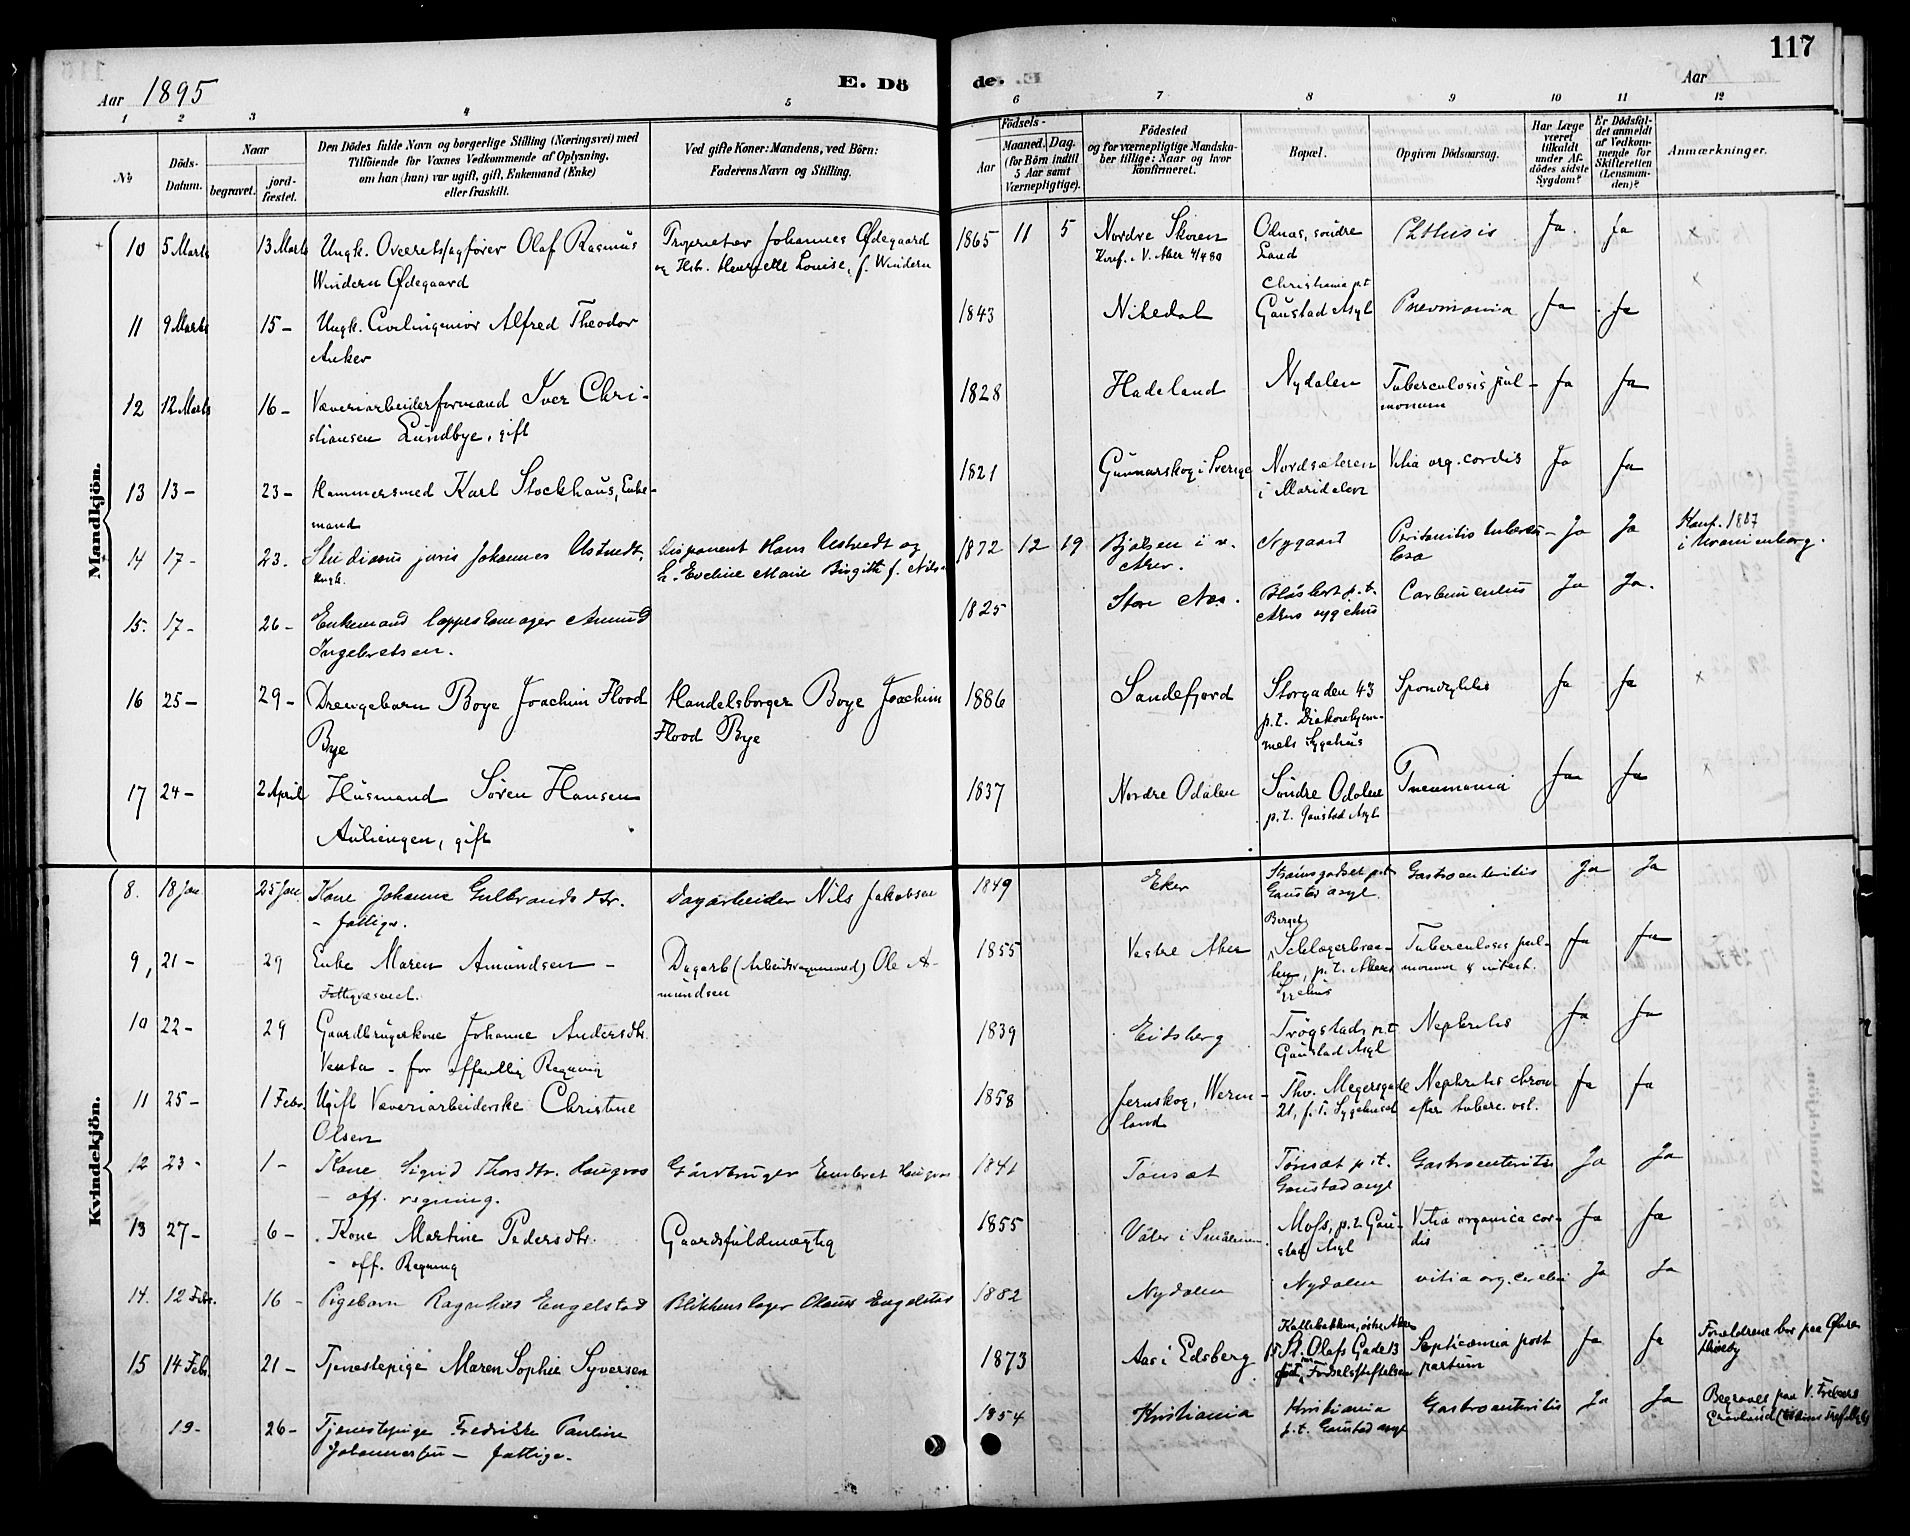 117
Aar 1895
E. Dö
de.
Aar
1 2 3 4 5 6 7 8 9 10 11 12
№
Döds-
Datum.
Naar
begravet.
jord-
fæstet.
Den Dödes fulde Navn og borgerlige Stilling (Næringsvei) med
Tilföiende for Voxnes Vedkommende af Oplysning,
om han (hun) var ugift, gift, Enkemand (Enke)
eller fraskilt.
Ved gifte Koner: Mandens, ved Börn:
Faderens Navn og Stilling.
Födsels-
Aar
Maaned. Dag.
(for Börn indtil
5 Aar samt
Værnepligtige).
Födested
og for værnepligtige Mandska-
ber tillige: Naar og hvor
konfirmeret.
Bopæl.
Opgiven Dödsaarsag.
Har Læge
været
tilkaldt
under Af-
dödes sidste
Sygdom?
Er Dödsfal-
det anmeldt
af Vedkom-
mende for
Skifteretten
(Lensman-
den)?
Anmærkninger.
Mandkjön.
10 5 Marts 13 Marts Ungk. Overretssagfører Olaf Rasmus Proprietær Johannes Ødegaard 1865 11 5 Nordre Skoien Odnas, söndre Phthisis Ja Ja x
Windern Ødegaard og Hstr. Henriette Louise, f. Windern Konf. i V. Aker 4/4 80 Land
11 9 Marts 15 - Ungk. Civilingeniör Alfred Theodor 1843 Nitedal Christiania p.t. Gaustad Asyl Pnevmonia Ja Ja x
Anker
12 12 Marts 16 - Væveriarbeiderformand Iver Chri- 1828 Hadeland Nydalen Tuberculosis pul- Ja Ja
stiansen Lundbye, gift monum
13 13 - 23 - Hammersmed Karl Stockhaus, Enke- 1821 Gunnarskog i Sverige Nordsæteren Vitia org. cordis Ja Ja
mand i Maridalen
14 17 - 23. Studiosus juris Johannes Astvedt, Disponent Hans Astvedt og 1872 12 19 Bjølsen i v. Nygaard Peritonitis tubercu- Ja Ja Konf. 1887
ungk. h. Eveline Marie Birgitte f. Nils- Aker. losa i Uranienborg.
15. 17 - 26 - Enkemand Amund 1825 Store Næs. p.t. Carbunculus Ja Ja.
Ingebretsen. Akers sygehus
16 25 - 29 - Drengebarn Boye Joachim Flood Handelsborger Boye Joachim 1886 Sandefjord Storgaden 43 Spondylitis Ja Ja x
Bye Flood Bye p.t. Diakonhjem-
mets Sygehus
17 24 - 2 April Husmand Søren Hansen 1837 Nordre Odalen Söndre Odalen Pneumonia Ja Ja x
Auliengen, gift p.t. Gaustad Asyl
Kvindekjön.
8. 18 Jan 25 Jan. Kone Johanne Gulbrandsdtr. Dagarbeider Nils Jakobsen 1849 Eker Strømsgodset p.t. Gastroenteritis Ja Ja
- fattige. Gaustad asyl.
9, 21 - 29 Enke Maren Amundsen - Dagarb (Arbeidsvognmand) Ole A- 1855 Vestre Aker Berget Tuberculosis pul- Ja Ja
Fattigvæsenet. mundsen p.t. Akers monum & intest.
Sygehus
10 22 - 29 Gaardbrugerkone Johanne Andersdtr. 1839 Eidsberg Trøgstad, p.t. Nephritis Ja Ja
- for offentlig Regning Gaustad Asyl
11 25 - 1 Febr. Ugift Væveriarbeiderske Christine 1858 Jernskog, Werm- Thv. Meyersgade Nephritis chron. Ja Ja
Olsen land 21, p.t. Sygehuset efter
12 23 - 1 - Kone Sigrid Thorsdtr. Haugros Gårdbruger Embret Haugros 1841 Tønset Tønset p.t. Gastroenteritis Ja Ja
- off. regning. Gaustad asyl
13 27 - 6 - Kone Martine Pedersdtr. Gaardsfuldmægtig 1855 Våler i Smålenene. Moss, p.t. Gau- Vitia organica cor- Ja Ja
- off. Regning stad Asyl dis
14. 12 Febr. 16 - Pigebarn Ragnhild Engelstad Blikkenslager Olaus Engelstad 1882 Nydalen Nydalen vitia org. cordis Ja Ja
15 14 Febr. 21 - Tjenestepige Maren Sophie Syversen 1873 Aas i Edsberg Kallebakken, östre Aker Septicæmia post Ja Ja Forældrene bor paa Øvre
St. Olafs Gade 13 partum
Fødselsstiftelsen
19 - 26 - Tjenestepige Fredrikke Pauline 1854 Kristiania Kristiania Gastroenteritis Ja Ja Begraves paa V. Frelsers
Johannessen - fattige. p.t. Gaustad asyl Gravlund